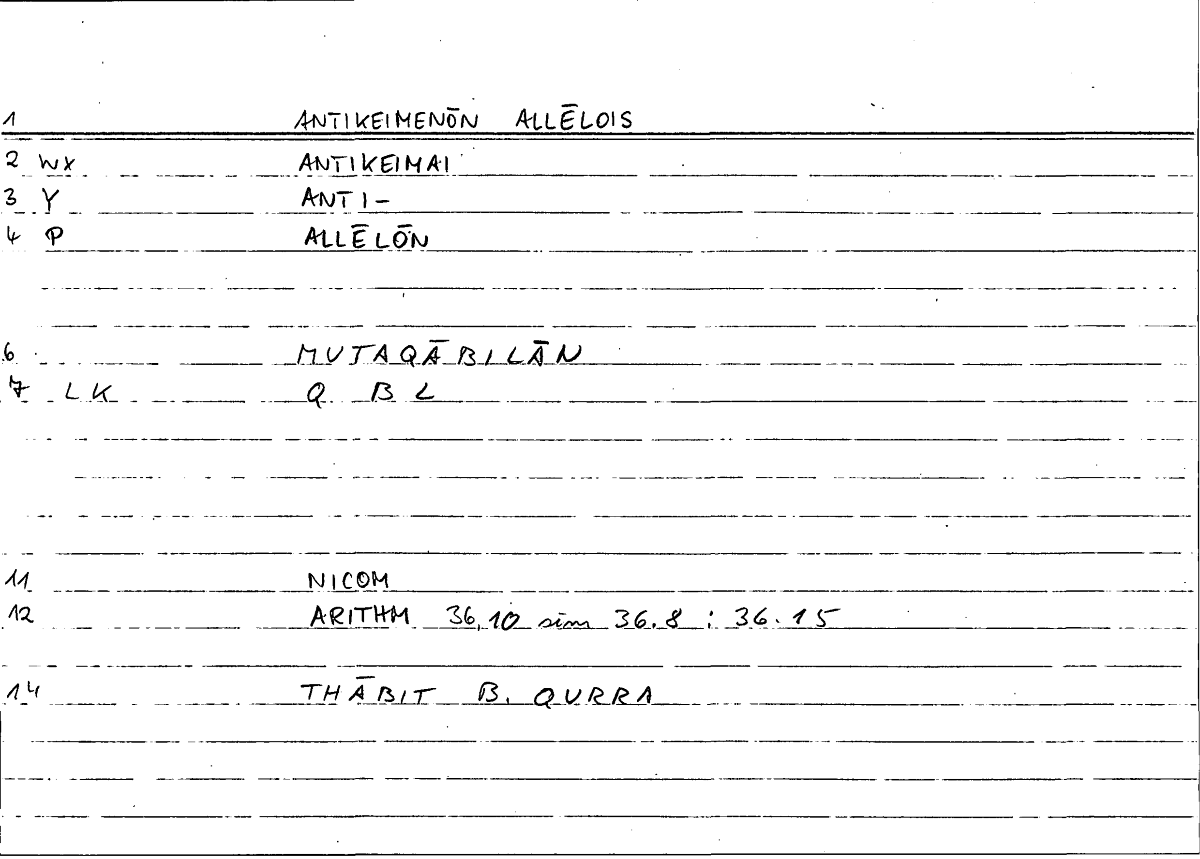 1 ANTIKEIMENŌN ALLĒLOIS
2 WX ANTIKEIMAI
3 Y ANTI-
4 P ALLĒLŌN
6 MUTAQĀBILĀN
7 LK Q B L
11 NICOM
12 ARITHM 36,10 sim 36.8 : 36.15
14 THĀBIT B. QURRA